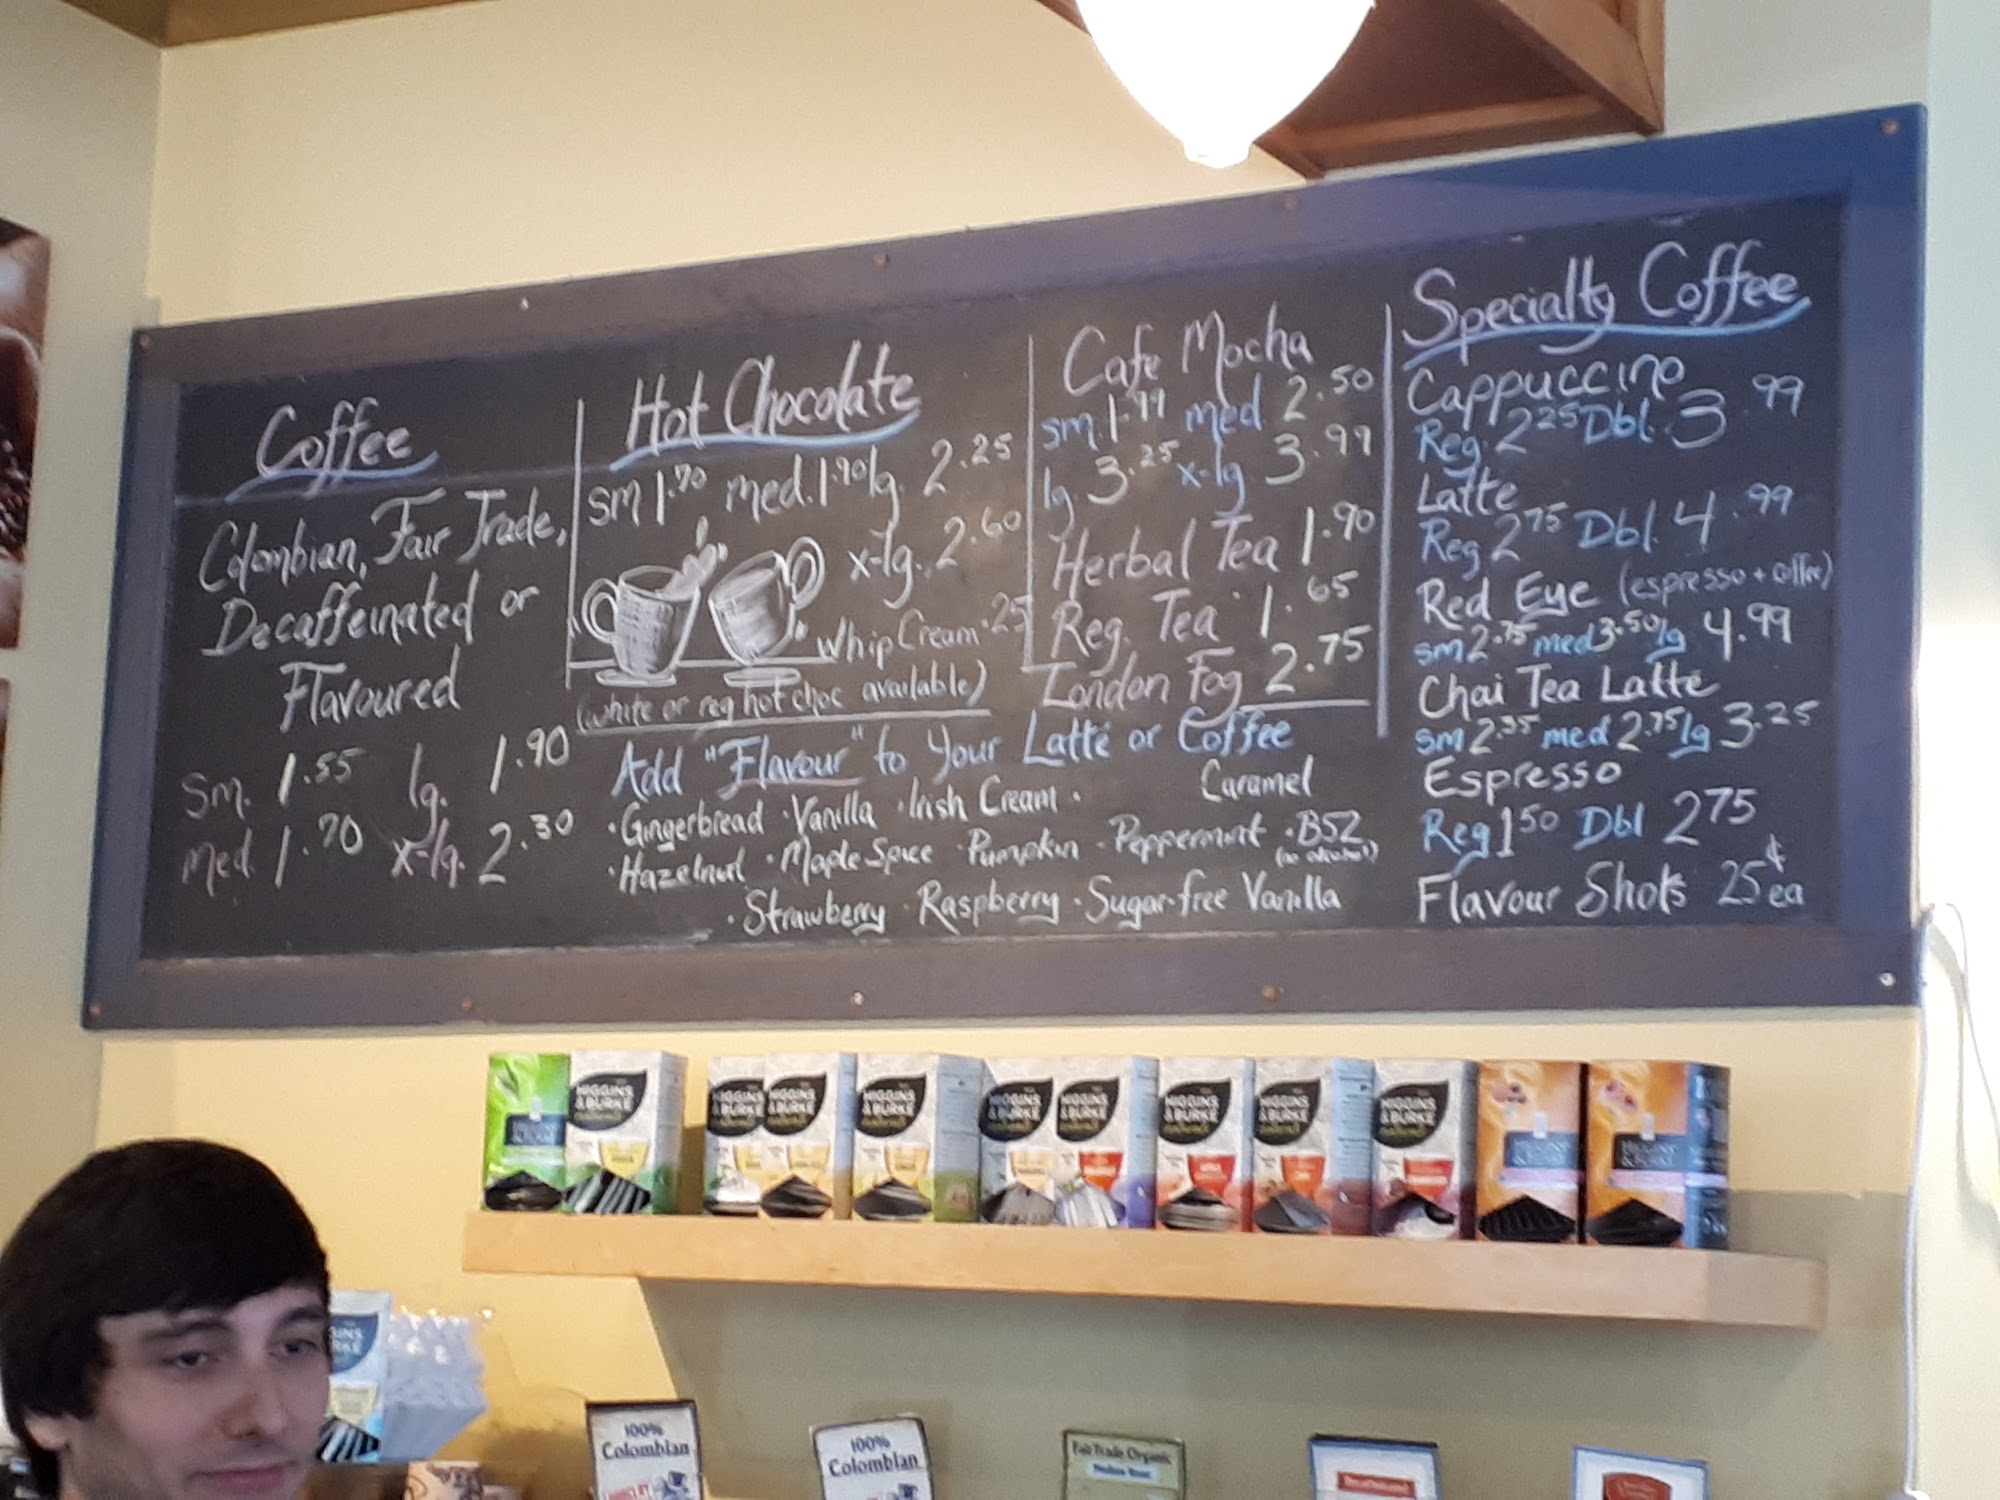 Coffee
Colombian, Fair Trade,
Decaffeinated or
Flavoured
sm. 1.55 lg. 1.90
med. 1.70 x-lg. 2.30
Hot Chocolate
sm 1.70 med. 1.90 lg. 2.25
x-lg. 2.60
Whip Cream .25
(white or reg hot choc available)
Cafe Mocha
sm. 1.99 med 2.50
lg 3.25 x-lg 3.99
Herbal Tea 1.90
Reg. Tea 1.65
London Fog 2.75
Add "Flavour" to Your Latte or Coffee
· Gingerbread · Vanilla · Irish Cream · Caramel
· Hazelnut · Maple Spice · Pumpkin · Peppermint · B52
(no alcohol)
· Strawberry · Raspberry · Sugar-free Vanilla
Specialty Coffee
Cappuccino
Reg. 2.25 Dbl. 3.99
Latte
Reg 2.75 Dbl. 4.99
Red Eye (espresso + coffee)
sm 2.75 med 3.50 lg 4.99
Chai Tea Latte
sm 2.35 med 2.75 lg 3.25
Espresso
Reg 1.50 Dbl 2.75
Flavour Shots 25¢ ea
HIGGINS & BURKE
HIGGINS & BURKE
HIGGINS & BURKE
HIGGINS & BURKE
HIGGINS & BURKE
HIGGINS & BURKE
HIGGINS & BURKE
HIGGINS & BURKE
HIGGINS & BURKE
100%
Colombian
100%
Colombian
Fair Trade Organic